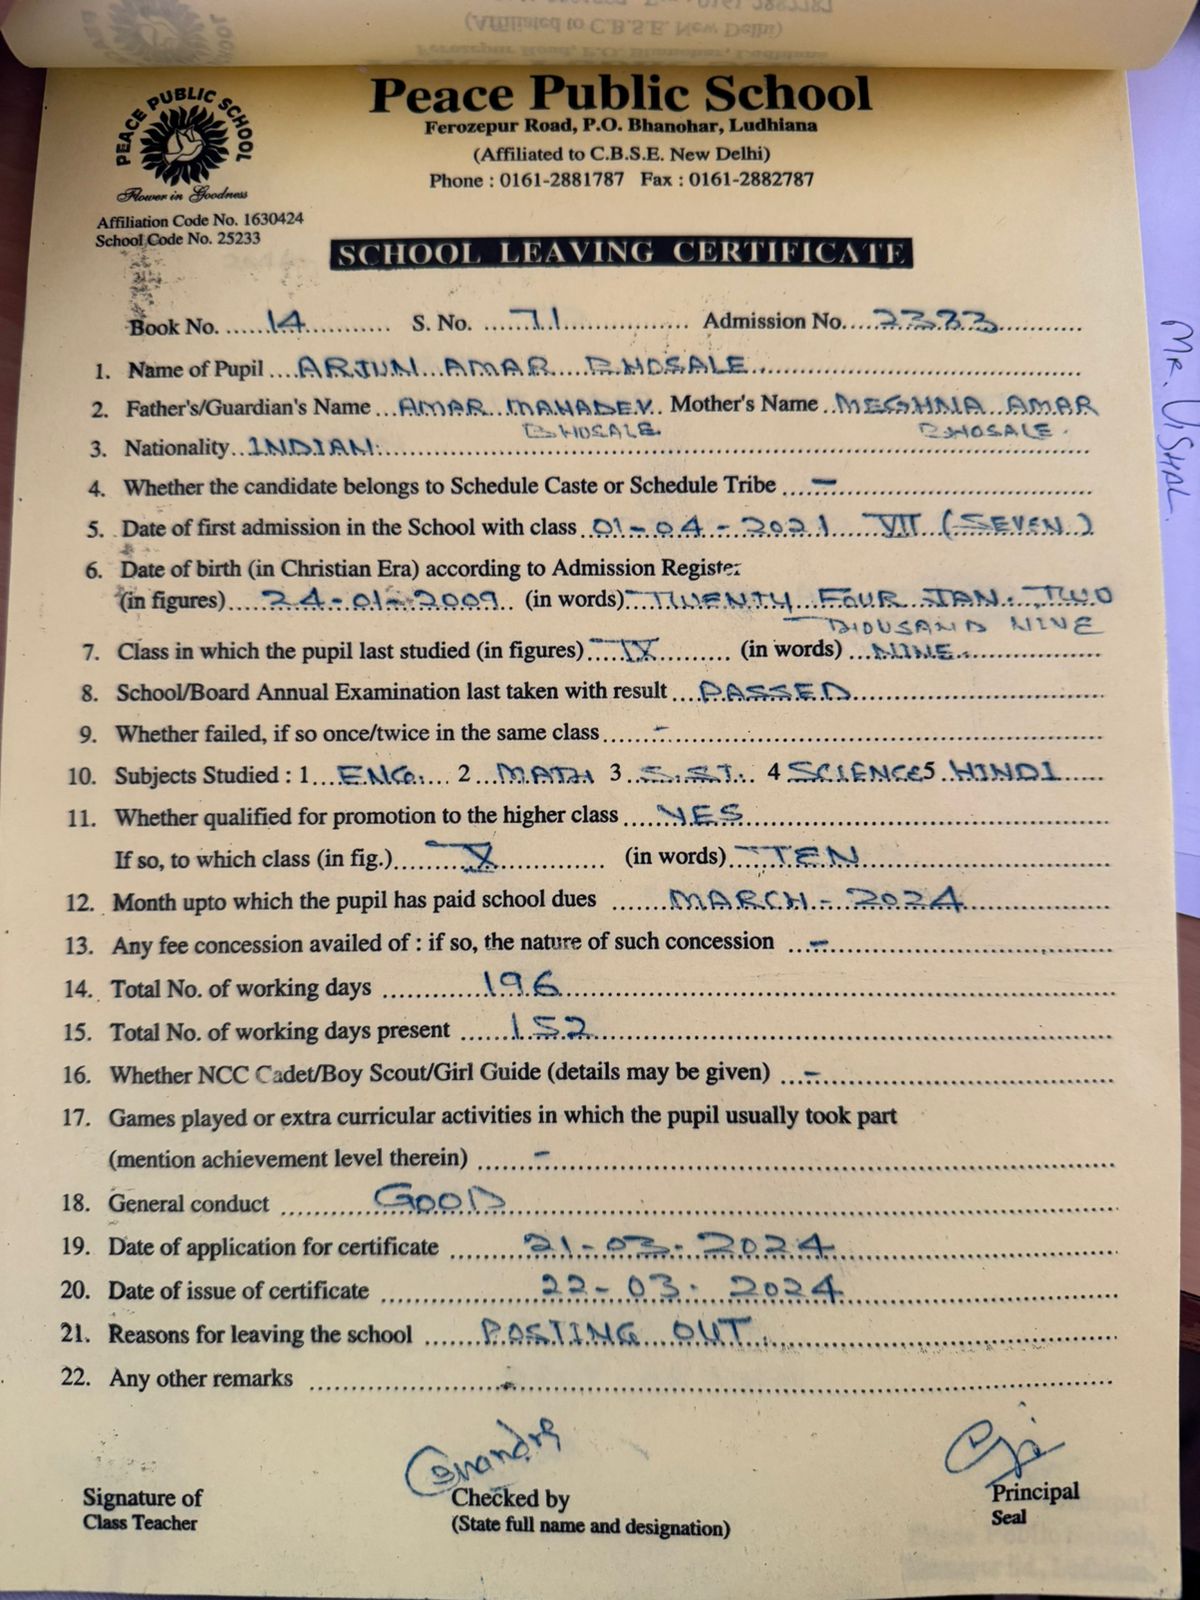 (Affiliated to C.B.S.E. New Delhi)
PEACE PUBLIC SCHOOL
Flower in Goodness
Affiliation Code No. 1630424
School Code No. 25233
Peace Public School
Ferozepur Road, P.O. Bhanohar, Ludhiana
(Affiliated to C.B.S.E. New Delhi)
Phone : 0161-2881787 Fax : 0161-2882787
SCHOOL LEAVING CERTIFICATE
Book No. 14 S. No. 71 Admission No. 2333
1. Name of Pupil ARJUN AMAR BHOSALE
2. Father's/Guardian's Name AMAR MAHADEV Mother's Name MEGHNA AMAR
BHOSALE BHOSALE.
3. Nationality INDIAN
4. Whether the candidate belongs to Schedule Caste or Schedule Tribe –
5. Date of first admission in the School with class 01-04-2021 VII (SEVEN)
6. Date of birth (in Christian Era) according to Admission Register
(in figures) 24-01-2009 (in words) TWENTY FOUR JAN. TWO
THOUSAND NINE
7. Class in which the pupil last studied (in figures) IX (in words) NINE
8. School/Board Annual Examination last taken with result PASSED
9. Whether failed, if so once/twice in the same class -
10. Subjects Studied : 1 ENG. 2 MATH 3 S.ST. 4 SCIENCE 5 HINDI
11. Whether qualified for promotion to the higher class YES
If so, to which class (in fig.) X (in words) TEN
12. Month upto which the pupil has paid school dues MARCH - 2024
13. Any fee concession availed of : if so, the nature of such concession –
14. Total No. of working days 196
15. Total No. of working days present 152
16. Whether NCC Cadet/Boy Scout/Girl Guide (details may be given) –
17. Games played or extra curricular activities in which the pupil usually took part
(mention achievement level therein) –
18. General conduct GOOD
19. Date of application for certificate 21-03-2024
20. Date of issue of certificate 22-03-2024
21. Reasons for leaving the school POSTING OUT.
22. Any other remarks -
Signature of
Class Teacher
Checked by
(State full name and designation)
Principal
Seal
MR. VISHAL